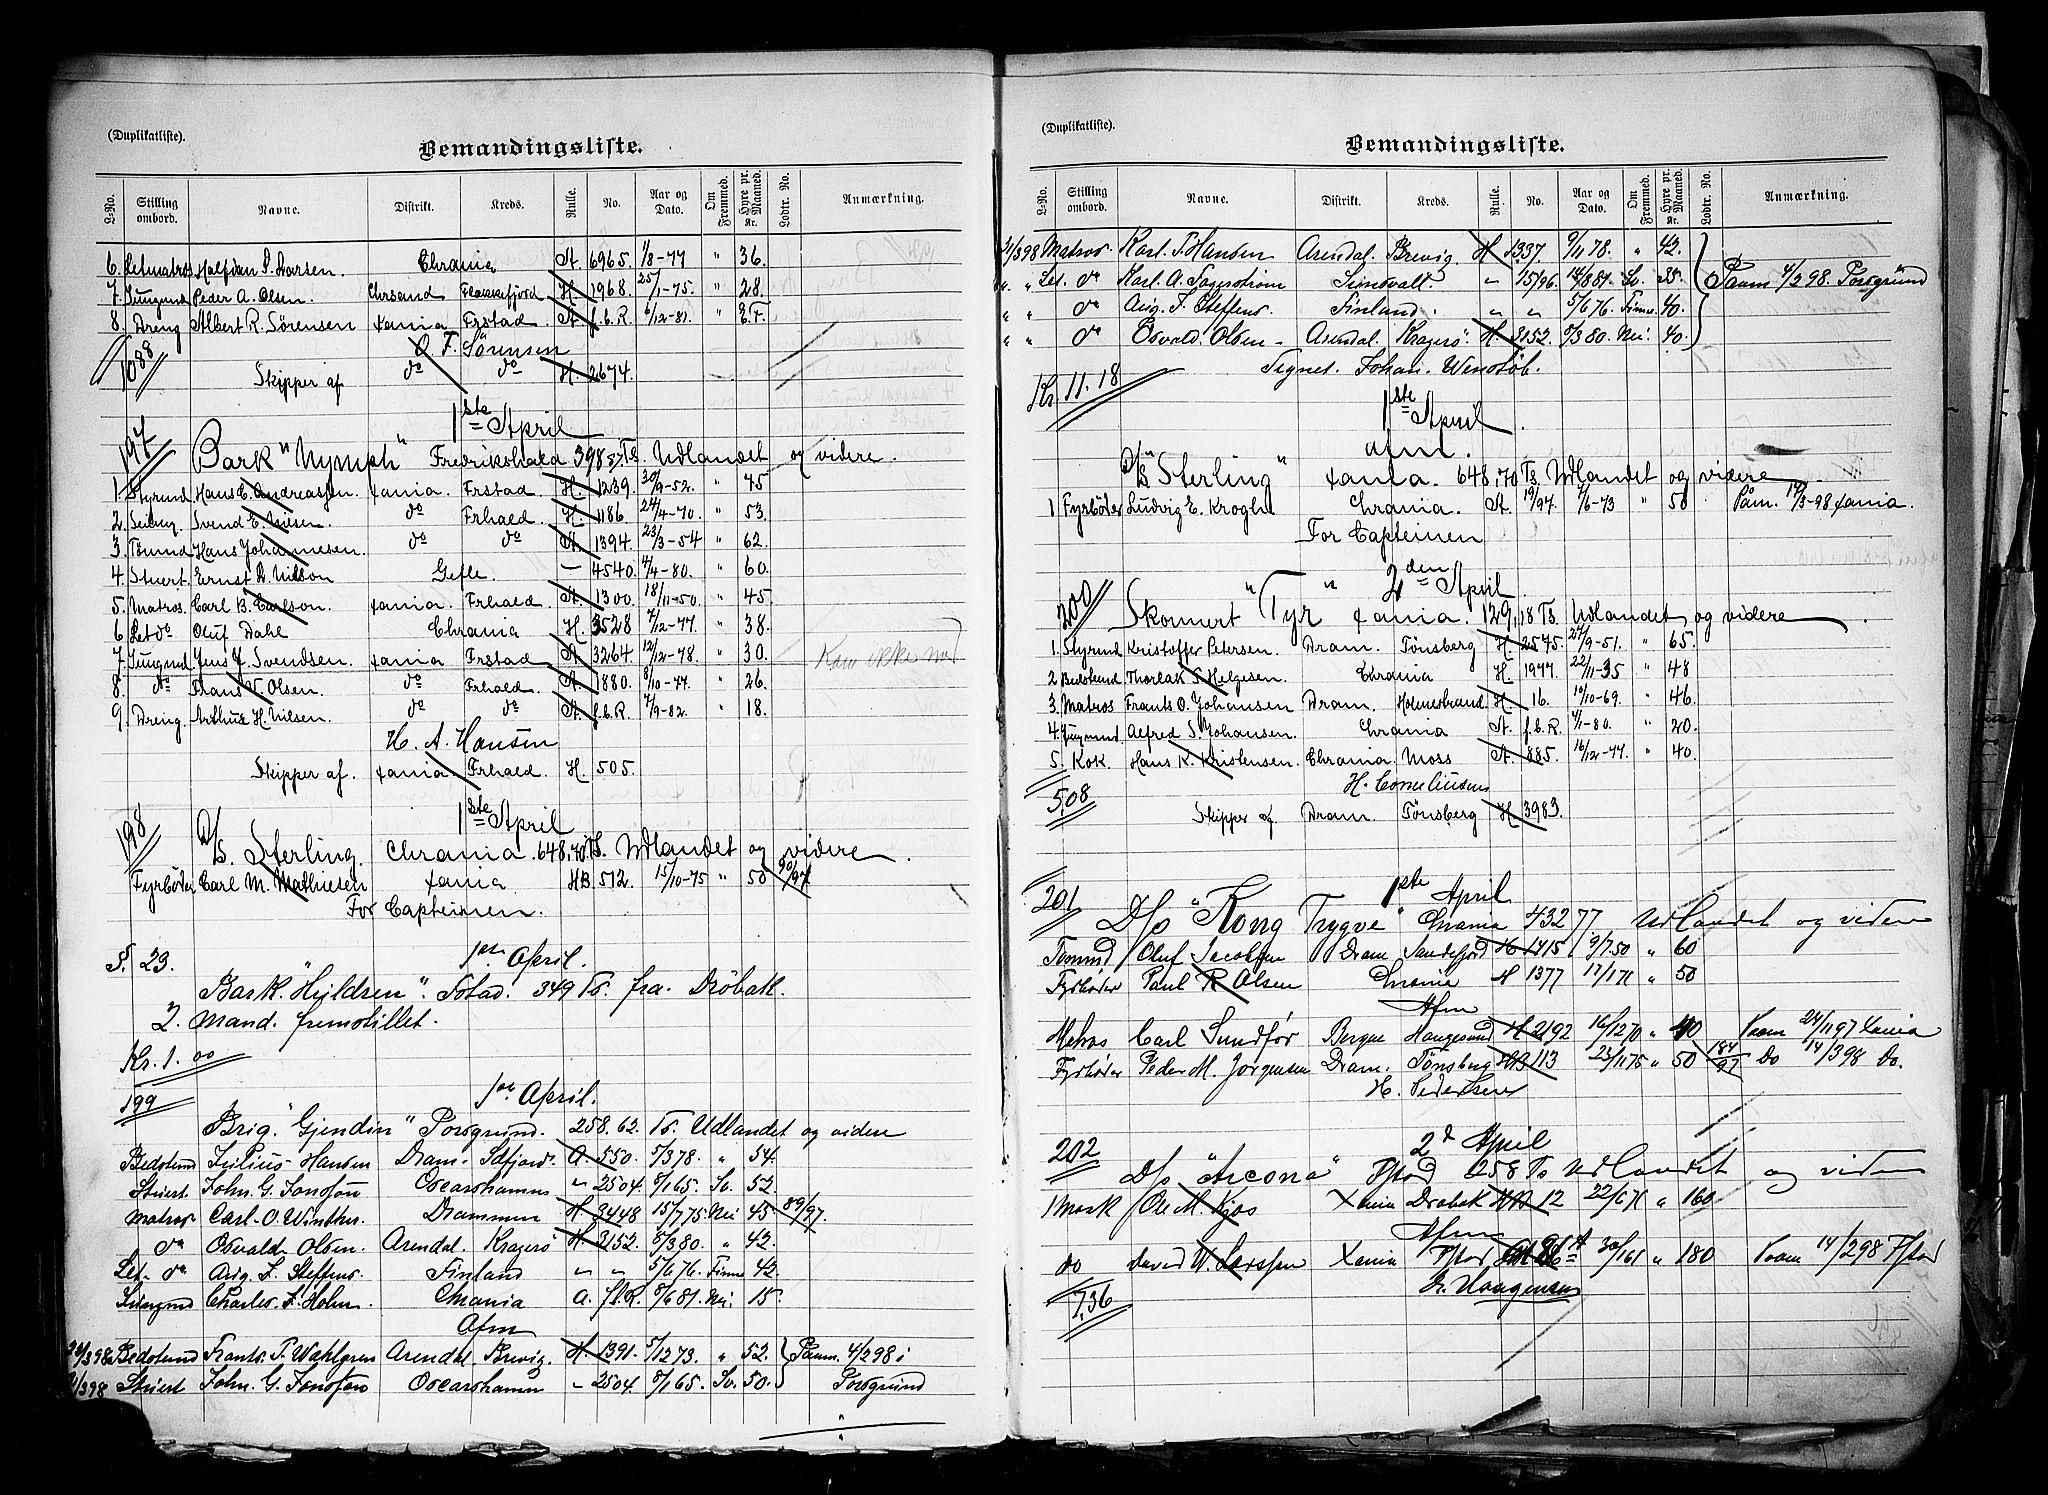 (Duplikatliste).
Bemandingsliste.
L-No. Stilling ombord. Navne. Distrikt. Kreds. Rulle. No. Aar og Dato. Om Fremmed. Hyre pr. Maaned. Kr. Lodtr. No. Anmærkning.
6. Letmatros Halfdan P. Larsen. Chrania A. 6965. 1/8-77 " 36.
7. Jungmd Peder A. Olsen. Chrsand Flekkefjord H. 1968. 25/1-75. " 28.
8. Dreng Albert R. Sörensen Xania Frstad. A. f.b.R. 6/12-81. " E.F.
O. F. Sörensen
1088 Skipper af do do H. 2674.
1ste April
197 Bark "Nymph" Fredrikshald 398,57 Ts. Udlandet og videre.
1. Styrmd Hans E. Andreassen. Xania. Frstad. H. 1239. 30/9-52. " 75
2. Svend E. Nilsen. do Frhald. H. 1186 24/4-70. " 53.
3. Tömmd Hans Johannesen. do do A. 1394. 23/3-54 " 62.
4. Stuert. Ernst R. Nilson Gefle. — 4540. 4/4-80. " 60.
5. Matros. Carl B. Carlson. Xania. Frhald. A. 1300. 18/11-50. " 45.
6. Let do Oluf Dahl Chrania H. 3528 7/12-77. " 38.
7. Jungmd Jens J. Svendsen. Xania Frstad. A. 3264. 12/12-78. " 30. Kan ikke med
8. do Frans V. Olsen. do Frhald. A. 1880. 8/10-77. " 26.
9. Dreng. Arthur H. Nilsen. do do A. f.b.R. 7/9-82. " 18.
H. A. Hansen
Skipper af. Xania. Frhald. H. 505.
1ste April
198 D/s. Sterling. Chrania. 648,70 Ts. Udlandet og videre.
Fyrböder Carl M. Mathiesen Xania HB 512. 15/10-75 " 50 90/97
For Capteinen.
§. 23. 1ste April.
Bark "Hjildren". Fstad. 349 Ts. fra. Dröbak.
2. Mand. fremstillet.
Kr. 1.00
199 1ste April.
Brig. "Gjendin" Porsgrund. 258.62. Ts. Udlandet og videre
Bedstmd Julius Hansen Dram. Sdfjord. A. 550. 5/3 78. " 54.
Stuert. John. G. Jonsson Oscarshamn " 2504. 5/1 65. Sv. 52.
Matros Carl. O. Winther. Drammen H 3448 15/7 75. Nei 45 89/97.
do Osvald Olsen. Arendal. Kragerö H. 3152. 5/3 80. " 42.
Let. do Aug. F. Steffens. Finland " " 5/6 76. Finne 42.
Jungmd Charles. F. Holm. Chrania A. f.b.R. 5/6 81. Nei. 15.
Afm
21/3 98 Bedstmd Frants. P. Wahlgren Arendal Brevig. H 1391. 5/12 73. " 52. Paam. 4/2 98 i
21/3 98 Stuert John. G. Jonsson Oscarshamn " 2504. 5/1 65. Sv. 50. Porsgrund
(Duplikatliste).
Bemandingsliste.
L-No. Stilling ombord. Navne. Distrikt. Kreds. Rulle. No. Aar og Dato. Om Fremmed. Hyre pr. Maaned. Kr. Lodtr. No. Anmærkning.
21/3 98 Matros. Karl. P. Hansen Arendal. Brevig. H 1337. 9/11 78. " 42.
" " Let. do Karl. A. Fagerström Sundsvall. " 15/96. 14/8 81. Sv. 35. Paam 4/2 98. Porsgrund
" " do Aug. F. Steffens. Finland. " " 5/6 76. Finne. 40.
" " do Osvald. Olsen Arendal. Kragerö H. 3152. 5/3 80. Nei. 40.
Kr. 11.18 Tegnet. Johan. Wenslöb.
1ste April
afm.
D/s "Sterling" Xania. 648,70 Ts. Udlandet og videre
1 Fyrböder Ludvig E. Krogh Chrania. A. 19/97. 7/6-73 " 50 Påm. 14/3-98 Xania.
For Capteinen
200 2den April
Skonnert "Tyr" Xania. 129,18 Ts. Udlandet og videre
1. Styrmd Kristoffer Petersen. Dram. Tönsberg H. 2575. 27/9-51. " 65.
2 Bedstmd Thorlak T. Helgesen. Chrania H. 1977. 22/11-35 " 48
3. Matros Frants O. Johansen Dram. Holmestrand H 16. 10/10-69. " 46.
4. Jungmd. Alfred S. Johansen. Chrania A. f.b.R. 4/1-80. " 20.
5. Kok. Hans K. Kristensen. Chrania. Moss A. 885. 16/12-77. " 40.
H. Corneliussen
5.08 Skipper af Dram. Tönsberg H 3983.
201 1ste April
D/s "Kong Trygve" Chrania 432 77 Udlandet og videre
Tömmd Oluf Jacobsen Dram Sandefjord H 1415 9/7 50 " 60
Fyrböder Paul R Olsen Chrania H 1377 17/1 71 " 50
Afm
Matros Carl Sundför Bergen Haugesund H 2192 16/12 70 " 40 Paam 24/11 97 Xania
Fyrböder Peder M. Jörgensen Dram. Tönsberg HB 113 23/11 75 " 50 184/97 Do 14/3 98 Do.
H. Pedersen
202 2d April
D/s "Ascona" Fstad 258 Ts Udlandet og videre
1 Mask Ole M. Kjos Xania Dröbak MA 12 22/6 71 " 160
Afm
do David W. Larssen Xania Fstad 30/1 61 " 180 Paam 14/2 98 Fstad
E. Haagensen
7.36